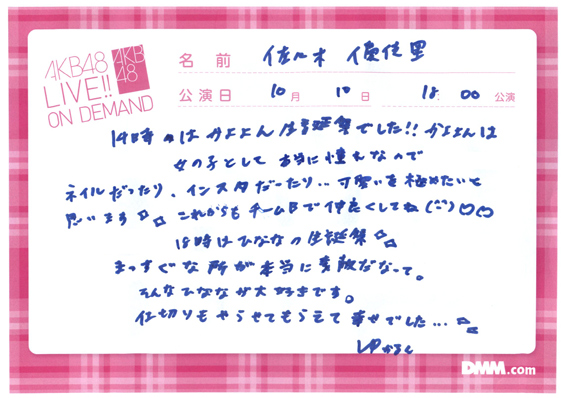 AKB48
LIVE!!
ON DEMAND
AKB
48
名前 佐々木 優佳里
公演日 10月 10日 18:00 公演
14時のはかよよん生誕祭でした!! かよよんは
女の子として本当に憧れなので
ネイルだったり、インスタだったり..可愛いを極めたいと
思います これからもチームBで仲良くしてね
18時はひななの生誕祭
まっすぐな所が本当に素敵だなって。
そんなひななが大好きです。
仕切りもやらせてもらえて幸せでした...
ゆかるん
DMM.com